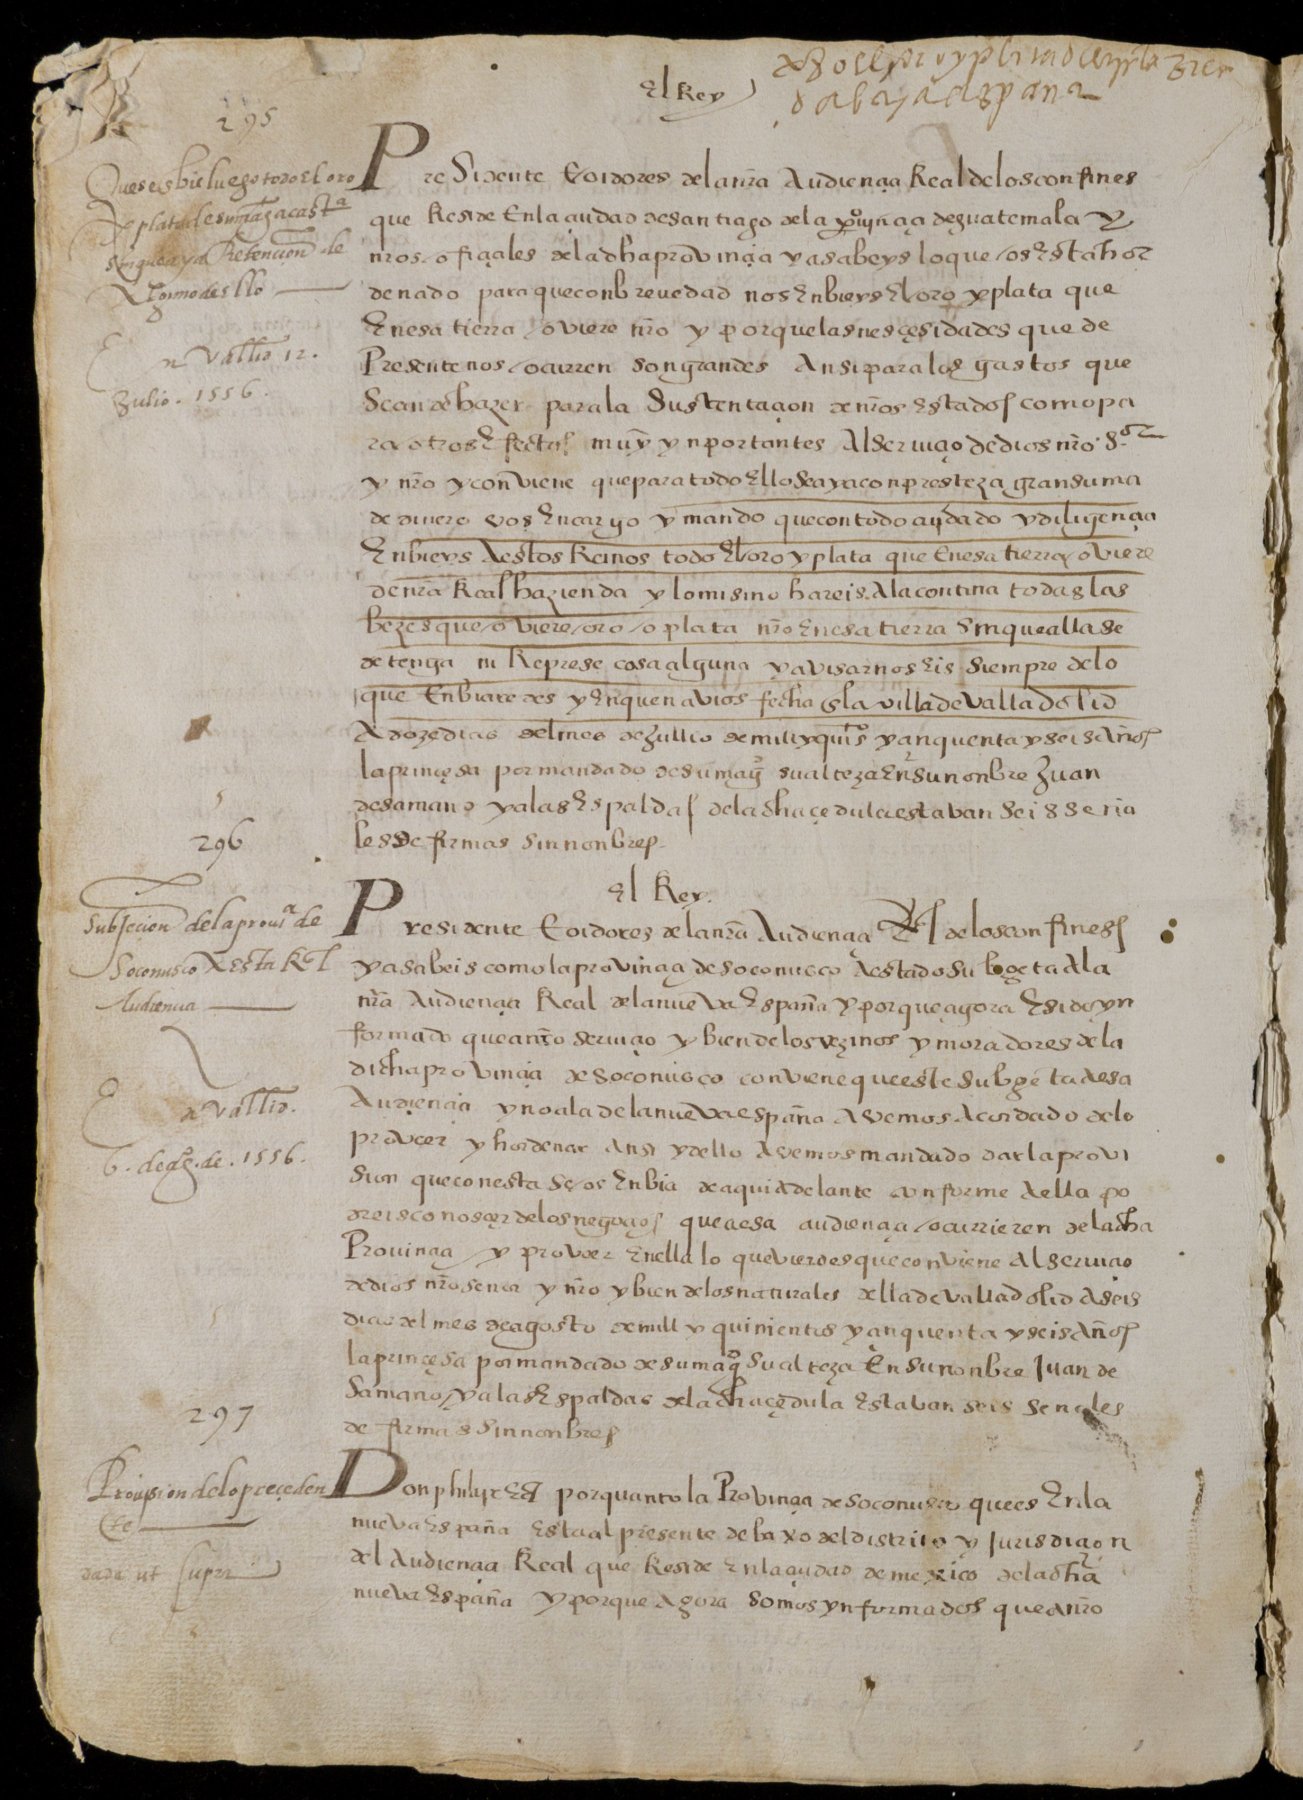 El Rey
dabaja a españa
295
Que se enbie luego todo el oro
e plata de su magd a casta
sin que aya Retencion de
En Vallid 12.
Julio. 1556.
Presidente E oidores de la nra Audiençia Real de los confines
que Reside En la çiudad de santiago de la prouinçia de guatemala y
nros ofiçiales de la dha provinçia ya sabeys lo que os Esta hor
denado para que con brevedad nos Enbieys El oro y plata que
En esa tierra oviere nro y porque las nesçesidades que de
Presente nos ocurren son grandes Ansi para los gastos que
Se an de hazer para la Sustentaçion de nros Estados como pa
ra otros Efectos muy ynportantes Al seruiçio de dios nro Sor
y nro y conviene que para todo Ello se aya con presteza gran suma
de dinero vos Encargo y mando que con todo cuydado y diligençia
Enbieys A estos Reinos todo El oro y plata que En esa tierra oviere
de nra Real hazienda y lo mismo hareis A la contina todas las
bezes que oviere oro o plata nro En esa tierra sin que alla se
detenga ni Represe cosa alguna y avisarnos Eis siempre de lo
que Enbiaredes y En que navios fecha En la villa de Valladolid
A doze dias del mes de Jullio de mill y quis y çinquenta y seis Años
la prinçesa por mandado de su magd su alteza En su nonbre Juan
de samano y a las Espaldas de la dha çedula estavan seis seña
les de firmas sin nonbres
296
El Rey.
Subjecion de la prouia de
Soconusco A Esta Rl
Audiencia
En Vallid.
6. de agto. de. 1556.
Presidente E oidores de la nra Audiençia Rl de los confines
ya sabeis como la provinçia de soconusco A estado subgeta A la
nra Audiençia Real de la nueva España y porque agora E sido yn
formado que a nro seruiçio y bien de los vezinos y moradores de la
dicha provinçia de Soconusco conviene que este subgeta a esa
Audiençia y no a la de la nueva españa Avemos Acordado de lo
proveer y hordenar Ansi y dello Avemos mandado dar la provi
sion que con esta se os Enbia de aqui Adelante conforme A ella po
dreis conosçer de los negoçios que a esa audiençia ocurrieren de la dha
Prouinçia y proveer En ella lo que vierdes que conviene Al seruiçio
de dios nro señor y nro y bien de los naturales della de Valladolid A seis
dias del mes de agosto de mill y quinientos y çinquenta y seis Años
la prinçesa por mandado de su magd su alteza En su nonbre Juan de
Samano y a las Espaldas de la dha çedula Estavan seis señales
de firmas sin nonbres
297
Prouision de lo preçeden
te
data ut supra
Don phelipe Eª porquanto la Provinçia de soconusco que es En la
nueva España Esta al presente debaxo del distrito y Jurisdiçion
del Audiençia Real que Reside En la çiudad de mexico de la dha
nueva España y porque Agora somos ynformados que a nro